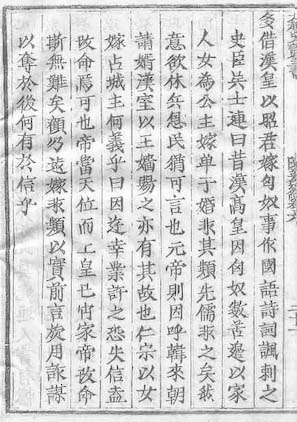 多借漢皇以昭君嫁匈奴事作國語詩詞諷刺之
史臣吳士連曰昔漢高皇因匈奴數苦邊以家
人女為公主嫁單于婚非其類先儒非之矣然
意欲休兵息民猶可言也元帝則因呼韓來朝
請婿漢室以王嬙賜之亦有其故也仁宗以女
嫁占城主何義乎曰因遊幸業許之恐失信盍
改命焉可也帝當天位而上皇已出家帝改命
斯無難矣顧乃遠嫁非類以實前言旋用詐謀
以奪於後何有於信乎